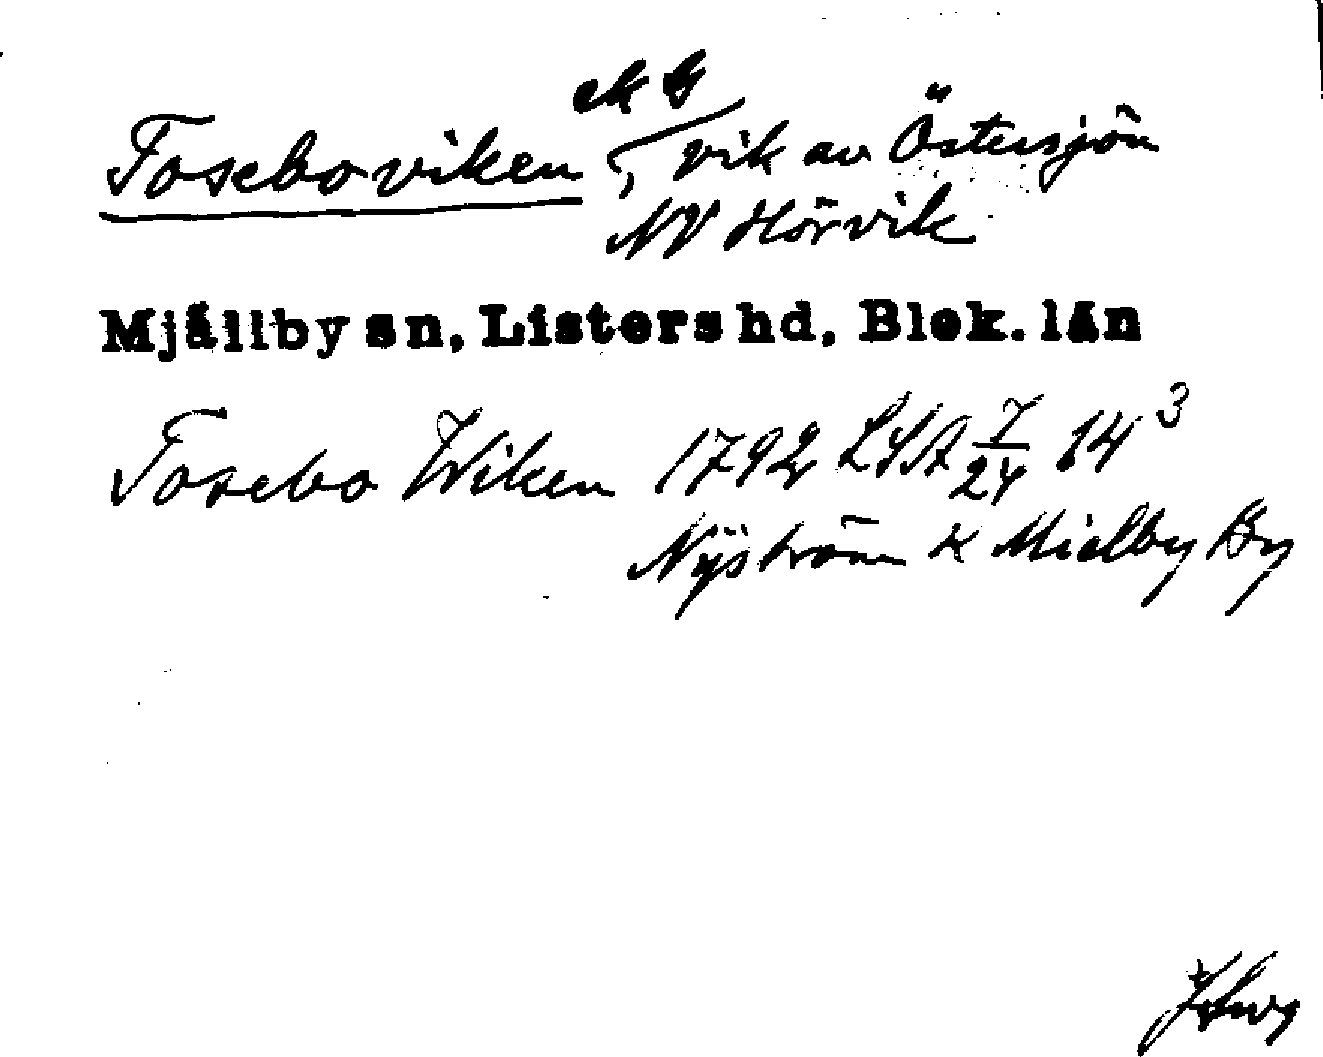 ek G
Toseboviken, vik av Östersjön
NV Hörvik
Mjällby sn, Listers hd, Blek. län
Tosebo Wiken 1792 LSA I/24 14³
Nÿström K Mielby By